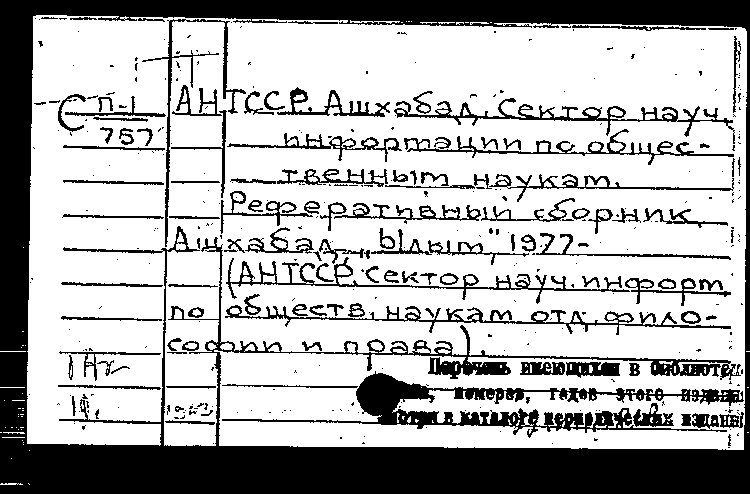 С П-1 АН ТССР. Ашхабад. Сектор науч.
757 информации по общес-
твенным наукам.
Реферативный сборник.
Ашхабад, „Ылым", 1977-
(АН ТССР. Сектор науч. информ.
по обществ. наукам отд. фило-
софии и права).
Перечень имеющихся в библиотеке
номеров, годов этого издания
смотри в каталоге периодических издани